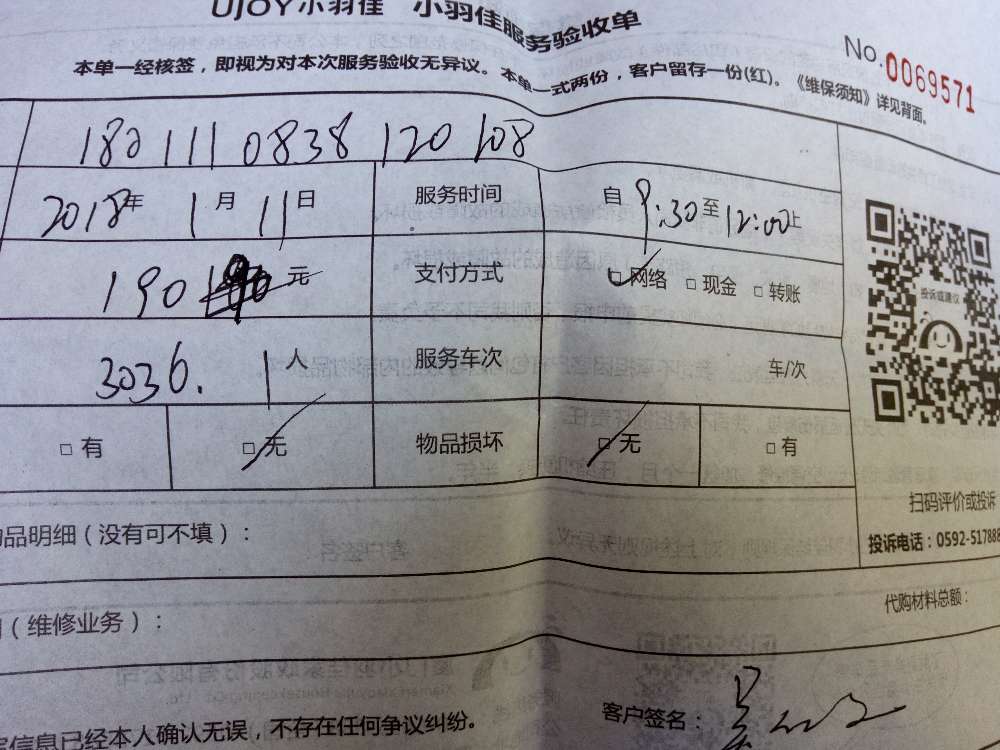 UJOY小羽佳 小羽佳服务验收单
No.0069571
本单一经核签，即视为对本次服务验收无异议。本单一式两份，客户留存一份(红)。《维保须知》详见背面。
180111 0838 120 108
2018年 1月 11日 服务时间 自 9:30 至 12:00 止
190 元 支付方式 □ 网络 □ 现金 □ 转账
投诉或建议
3036. 1人 服务车次 车/次
□ 有 □ 无 物品损坏 □ 无 □ 有
扫码评价或投诉
品明细（没有可不填）：
投诉电话：0592-517888
（维修业务）： 代购材料总额：
信息已经本人确认无误，不存在任何争议纠纷。 客户签名：